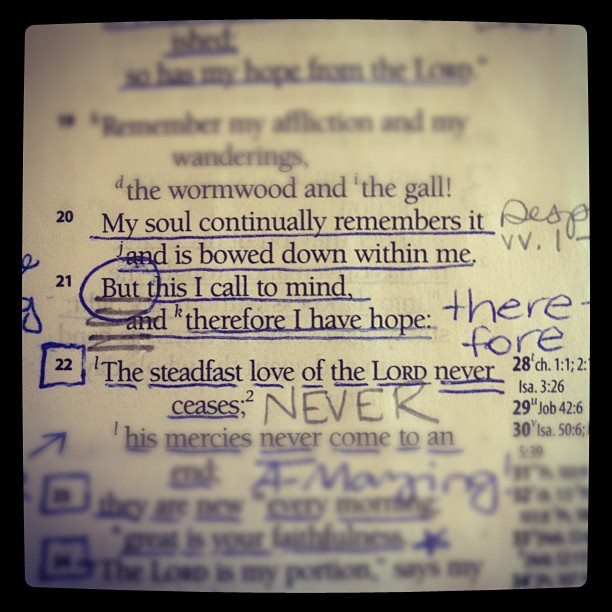 ished;
so has my hope from the LORD."
19 h Remember my affliction and my
wanderings,
d the wormwood and i the gall!
20 My soul continually remembers it
j and is bowed down within me.
21 But this I call to mind,
and k therefore I have hope:
there-
fore
22 l The steadfast love of the LORD never
ceases;2 NEVER
l his mercies never come to an
end; A-Mazing
23 they are new m every morning;
n great is your faithfulness.
24 "The LORD is my portion," says my
vv. 1
28 t ch. 1:1; 2:
Isa. 3:26
29 u Job 42:6
30 v Isa. 50:6;
5:39